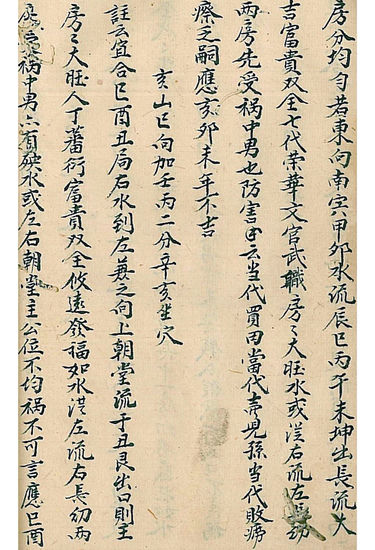 房分均匀若東向南寅甲卯水流辰巳丙午未坤出長流大
吉富貴双全七代荣華文官武職房〻大旺水或從右流左長幼
兩房先受禍中男也防害 云當代買田當代賣兒孫當代敗癆
瘵乏嗣應亥卯未年不吉
亥山巳向加壬丙二分辛亥坐穴
註云宜合巳酉丑局右水到左 之向上朝堂流于丑艮出口則主
房〻大旺人丁蕃衍富貴双全攸遠發福如水從左流右長幼兩
房受禍中男亦有殃水或左右朝堂主公位不均禍不可言應巳酉